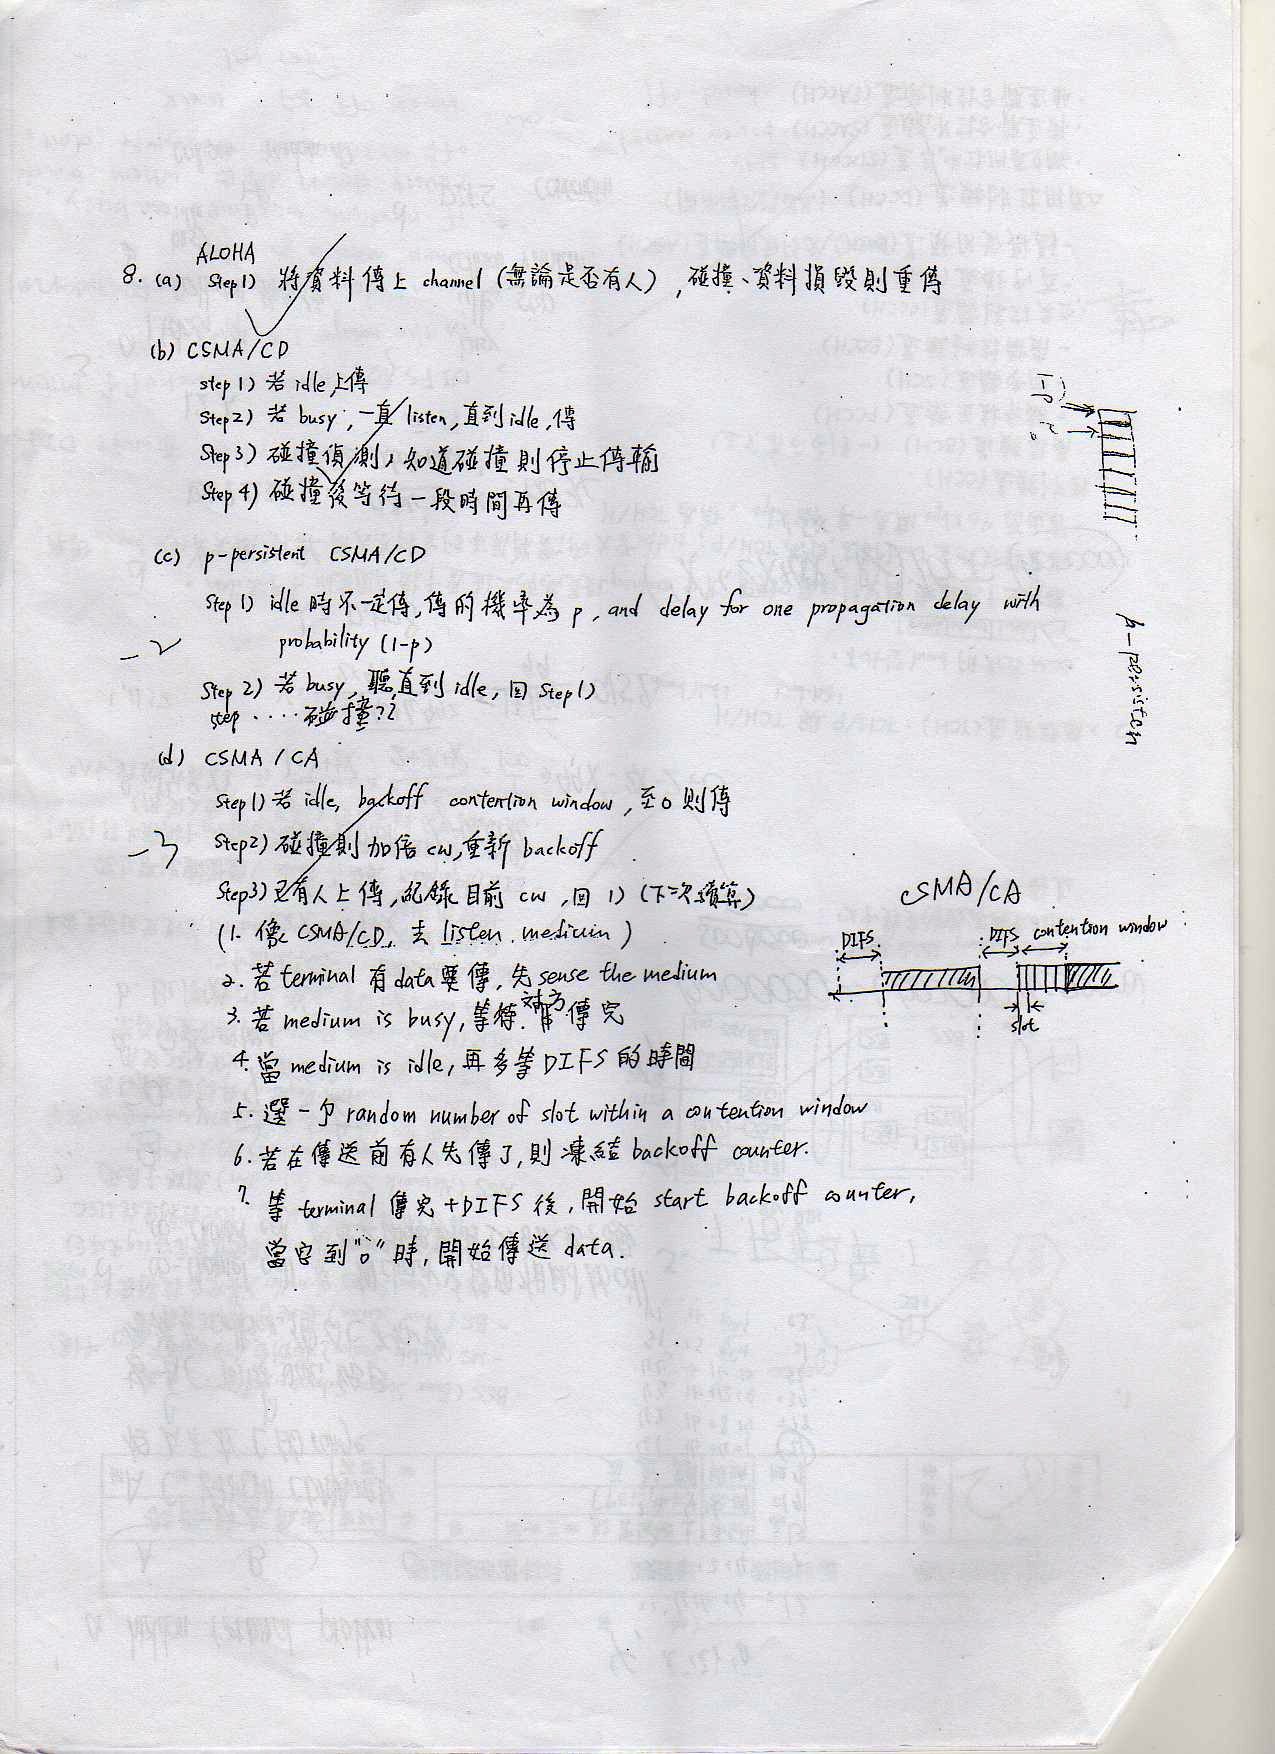 ALOHA
8. (a) Step1) 將資料傳上 channel (無論是否有人), 碰撞、資料損毀則重傳
(b) CSMA/CD
step 1) 若 idle 上傳
Step 2) 若 busy, 一直 listen, 直到 idle, 傳
Step 3) 碰撞偵測, 知道碰撞則停止傳輸
Step 4) 碰撞後等待一段時間再傳
(c) p-persistent CSMA/CD
Step 1) idle 時不一定傳, 傳的機率為 p, and delay for one propagation delay with
probability (1-p)
-2
Step 2) 若 busy, 聽直到 idle, 回 Step 1)
step ‥‥ 碰撞??
(d) CSMA / CA
Step 1) 若 idle, backoff contention window, 至 0 則傳
-3
Step 2) 碰撞則加倍 cw, 重新 backoff
Step 3) 已有人上傳, 紀錄目前 cw, 回 1) (下次續算)
(1. 像 CSMA/CD, 去 listen medium)
2. 若 terminal 有 data 要傳, 先 sense the medium
3. 若 medium is busy, 等待對方傳完
4. 當 medium is idle, 再多等 DIFS 的時間
5. 選一個 random number of slot within a contention window
6. 若在傳送前有人先傳了, 則凍結 backoff counter.
7. 等 terminal 傳完 + DIFS 後, 開始 start backoff counter,
當它到 "0" 時, 開始傳送 data.
1-p
p-persisten
CSMA/CA
DIFS DIFS contention window
slot